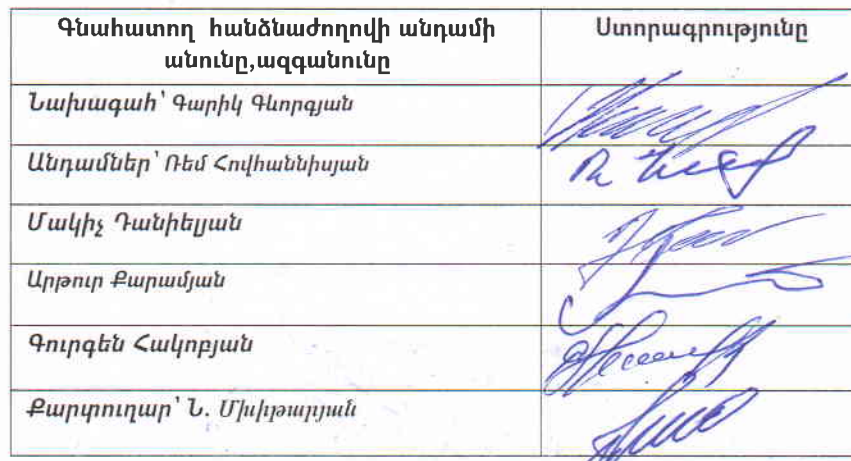 Գնահատող հանձնաժողովի անդամի
անունը,ազգանունը
Ստորագրությունը
Նախագահ՝ Գարիկ Գևորգյան
Անդամներ՝ Ռեմ Հովհաննիսյան
Մակիչ Դանիելյան
Արթուր Քարամյան
Գուրգեն Հակոբյան
Քարտուղար՝ Ն. Մխիթարյան